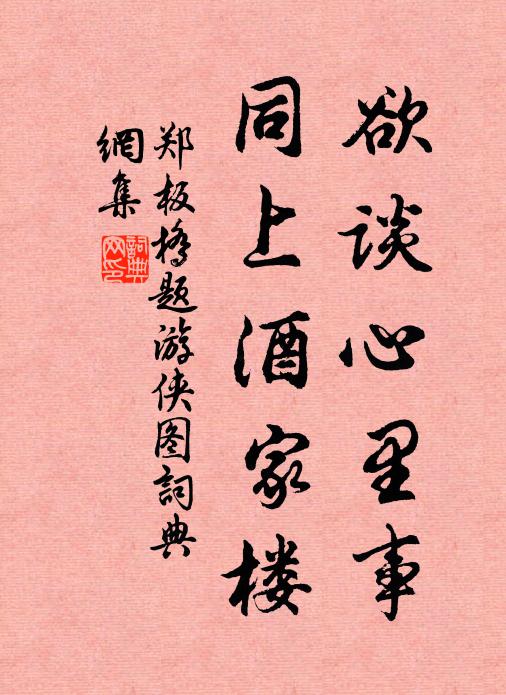 欲谈心里事
同上酒家楼
郑板桥题游侠图词典
網集
詞典
网印